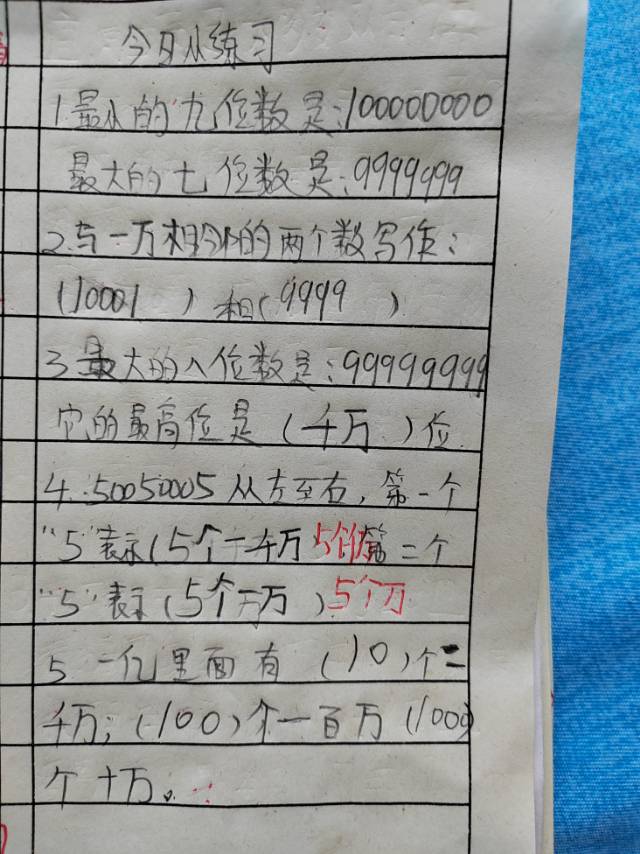 今日小练习
1.最小的九位数是:100000000
最大的七位数是:9999999
2.与一万相邻的两个数写作:
(10001 ) 和(9999 )
3.最大的八位数是:99999999
它的最高位是(千万 )位
4.:50050005从左至右,第一个
"5"表示(5个一千万 第二个
"5"表示(5个一万 )5个万
5 一亿里面有 (10)个一
千万;(100)个一百万(1000)
个十万。